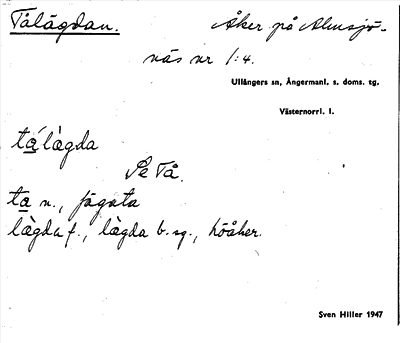 Tålägdan. Åker på Almsjö-
näs nr 1:4.
Ullångers sn, Ångermanl. s. doms. tg.
Västernorrl. l.
ta´làgda
Se Tå.
ta n., fägata
làgda f., làgda b. sg., höåker.
Sven Hiller 1947